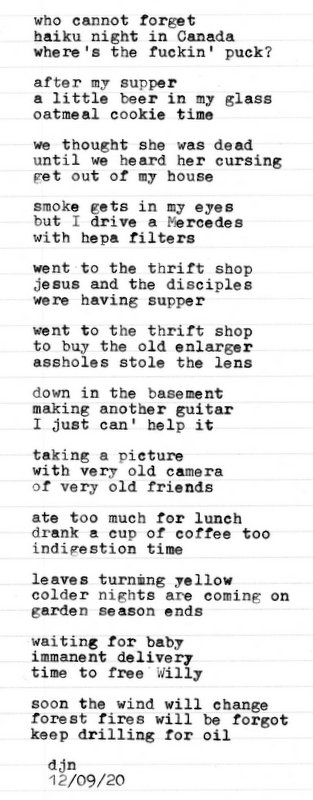 who cannot forget
haiku night in Canada
where's the fuckin' puck?
after my supper
a little beer in my glass
oatmeal cookie time
we thought she was dead
until we heard her cursing
get out of my house
smoke gets in my eyes
but I drive a Mercedes
with hepa filters
went to the thrift shop
jesus and the disciples
were having supper
went to the thrift shop
to buy the old enlarger
assholes stole the lens
down in the basement
making another guitar
I just can' help it
taking a picture
with very old camera
of very old friends
ate too much for lunch
drank a cup of coffee too
indigestion time
leaves turning yellow
colder nights are coming on
garden season ends
waiting for baby
immanent delivery
time to free Willy
soon the wind will change
forest fires will be forgot
keep drilling for oil
djn
12/09/20